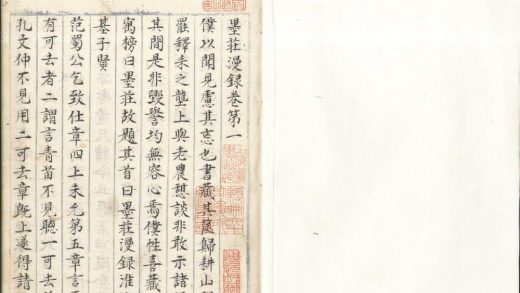 墨莊漫録卷第一
僕以聞見慮其忘也書藏其篋歸耕山
罷釋耒之壟上與老農憇談非敢示諸
其間是非毀譽均無容心焉僕性喜藏
寓榜曰墨莊故題其首曰墨莊漫録淮
基子賢
范蜀公乞致仕章四上未允第五章言
有可去者二謂言青苗不見聽一可去
孔文仲不見用二可去章既上遂得請